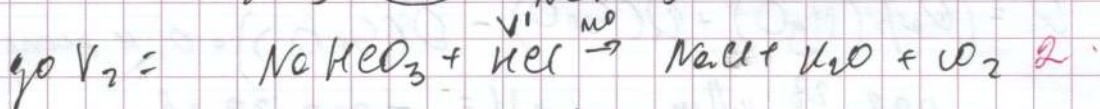 до V₂ = NaHCO₃ + HCl V' мо → NaCl + H₂O + CO₂ 2